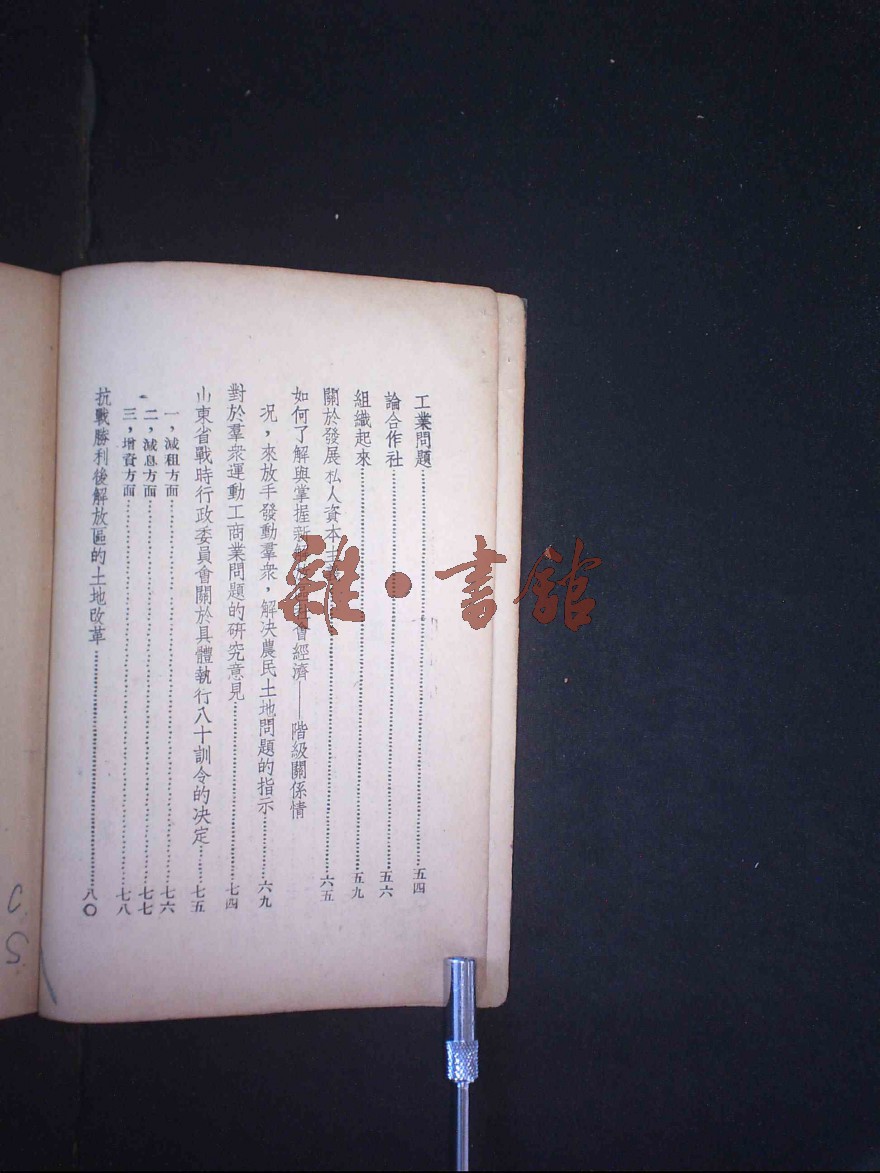 工業問題……五四
論合作社……五六
組織起來……五九
關於發展私人資本主……六五
如何了解與掌握新……會經濟——階級關係情
況，來放手發動羣衆，解決農民土地問題的指示……六九
對於羣衆運動工商業問題的研究意見……七四
山東省戰時行政委員會關於具體執行八十訓令的决定……七五
一，減租方面……七六
二，減息方面……七七
三，增資方面……七八
抗戰勝利後解放區的土地改革……八〇
雜·書館